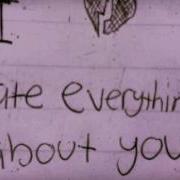 I
ate everythin
about you